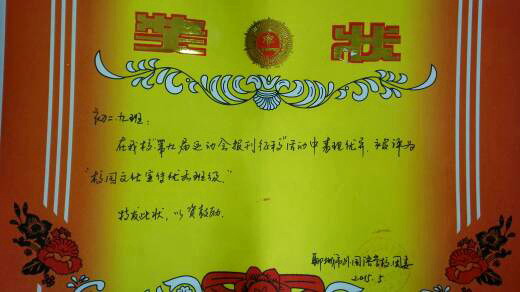 奖状
初二.九班:
在我校"第九届运动会报刊征稿"活动中表现优异,被评为
"校园文化宣传优秀班级."
特发此状,以资鼓励.
聊城市外国语学校团委
2015.5